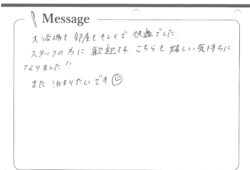 Message
大浴場も部屋もキレイで快適でした。
スタッフの方に歓迎され こちらも嬉しい気持ちに
なりました!!
また 泊まりたいです